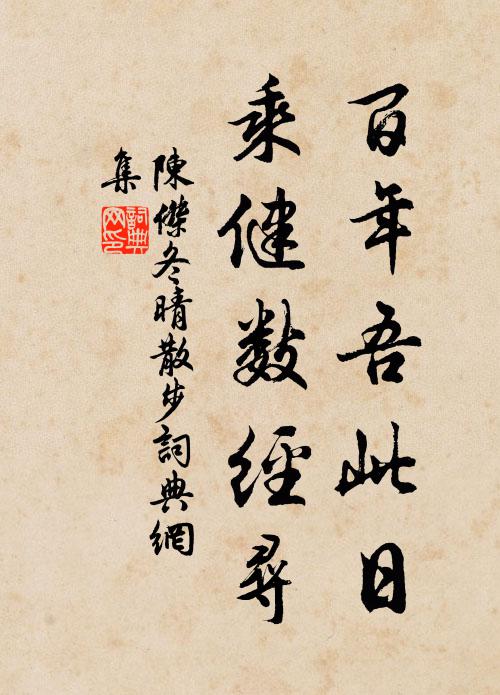 百年吾此日
乘健數經尋
陳傑冬晴散步詞典網
集
詞典網印